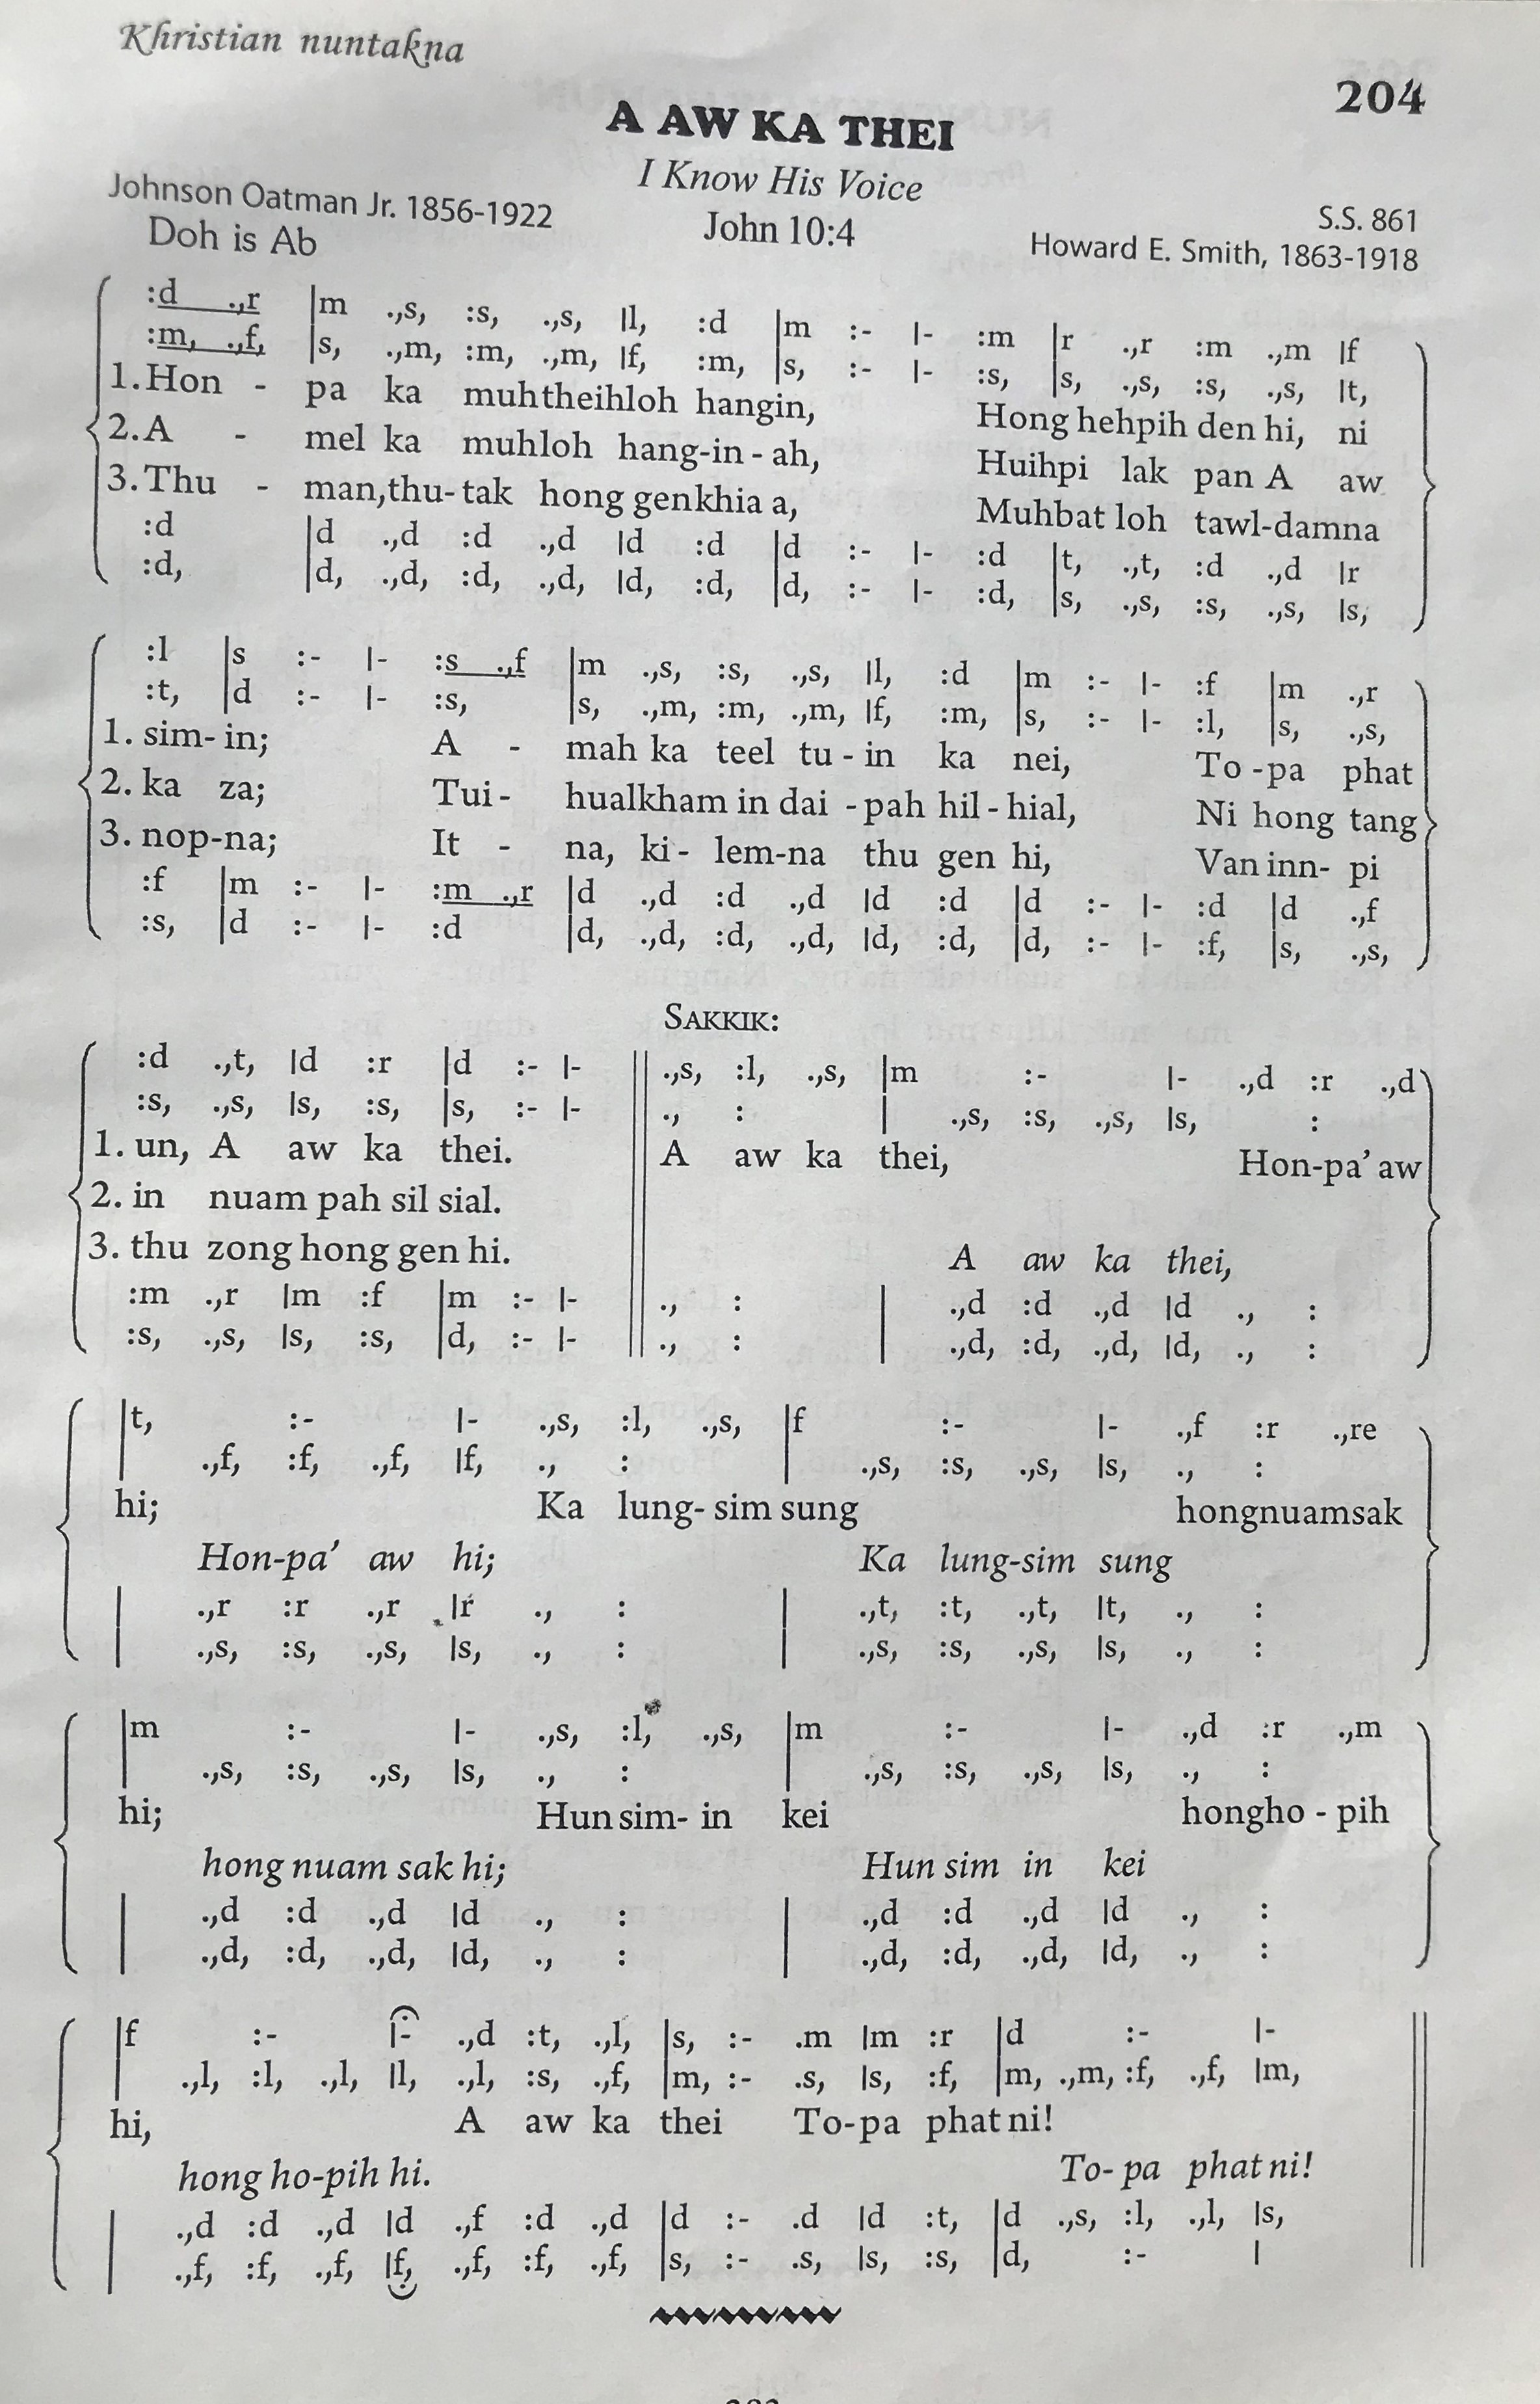 Khristian nuntakna
204
A AW KA THEI
I Know His Voice
Johnson Oatman Jr. 1856-1922
John 10:4
S.S. 861
Doh is Ab
Howard E. Smith, 1863-1918
:d .,r |m .,s, :s, .,s, |l, :d |m :- |- :m |r .,r :m .,m |f
:m, .,f, |s, .,m, :m, .,m, |f, :m, |s, :- |- :s, |s, .,s, :s, .,s, |t,
1.Hon - pa ka muhtheihloh hangin, Hong hehpih den hi, ni
2.A - mel ka muhloh hang-in - ah, Huihpi lak pan A aw
3.Thu - man,thu-tak hong genkhia a, Muhbat loh tawl-damna
:d |d .,d :d .,d |d :d |d :- |- :d |t, .,t, :d .,d |r
:d, |d, .,d, :d, .,d, |d, :d, |d, :- |- :d, |s, .,s, :s, .,s, |s,
:l |s :- |- :s .,f |m .,s, :s, .,s, |l, :d |m :- |- :f |m .,r
:t, |d :- |- :s, |s, .,m, :m, .,m, |f, :m, |s, :- |- :l, |s, .,s,
1. sim- in; A - mah ka teel tu - in ka nei, To -pa phat
2. ka za; Tui- hualkham in dai -pah hil - hial, Ni hong tang
3. nop-na; It - na, ki- lem-na thu gen hi, Van inn- pi
:f |m :- |- :m .,r |d .,d :d .,d |d :d |d :- |- :d |d .,f
:s, |d :- |- :d |d, .,d, :d, .,d, |d, :d, |d, :- |- :f, |s, .,s,
SAKKIK:
:d .,t, |d :r |d :- |- || .,s, :l, .,s, |m :- |- .,d :r .,d
:s, .,s, |s, :s, |s, :- |- ., : | .,s, :s, .,s, |s, :
1. un, A aw ka thei. A aw ka thei, Hon-pa’ aw
2. in nuam pah sil sial.
3. thu zong hong gen hi. A aw ka thei,
:m .,r |m :f |m :- |- ., : | .,d :d .,d |d ., :
:s, .,s, |s, :s, |d, :- |- ., : | .,d, :d, .,d, |d, ., :
|t, :- |- .,s, :l, .,s, |f :- |- .,f :r .,re
.,f, :f, .,f, |f, ., : .,s, :s, .,s, |s, ., :
hi; Ka lung- sim sung hongnuamsak
Hon-pa’ aw hi; Ka lung-sim sung
| .,r :r .,r |r ., : | .,t, :t, .,t, |t, ., :
.,s, :s, .,s, |s, ., : .,s, :s, .,s, |s, ., :
|m :- |- .,s, :l, .,s, |m :- |- .,d :r .,m
.,s, :s, .,s, |s, ., : .,s, :s, .,s, |s, ., :
hi; Hun sim- in kei hongho - pih
hong nuam sak hi; Hun sim in kei
| .,d :d .,d |d ., : | .,d :d .,d |d ., :
.,d, :d, .,d, |d, ., : .,d, :d, .,d, |d, ., :
|f :- |- .,d :t, .,l, |s, :- .m |m :r |d :- |-
.,l, :l, .,l, |l, .,l, :s, .,f, |m, :- .s, |s, :f, |m, .,m, :f, .,f, |m,
hi, A aw ka thei To-pa phat ni!
hong ho-pih hi. To- pa phat ni!
| .,d :d .,d |d .,f :d .,d |d :- .d |d :t, |d .,s, :l, .,l, |s,
.,f, :f, .,f, |f, .,f, :f, .,f, |s, :- .s, |s, :s, |d, :- |